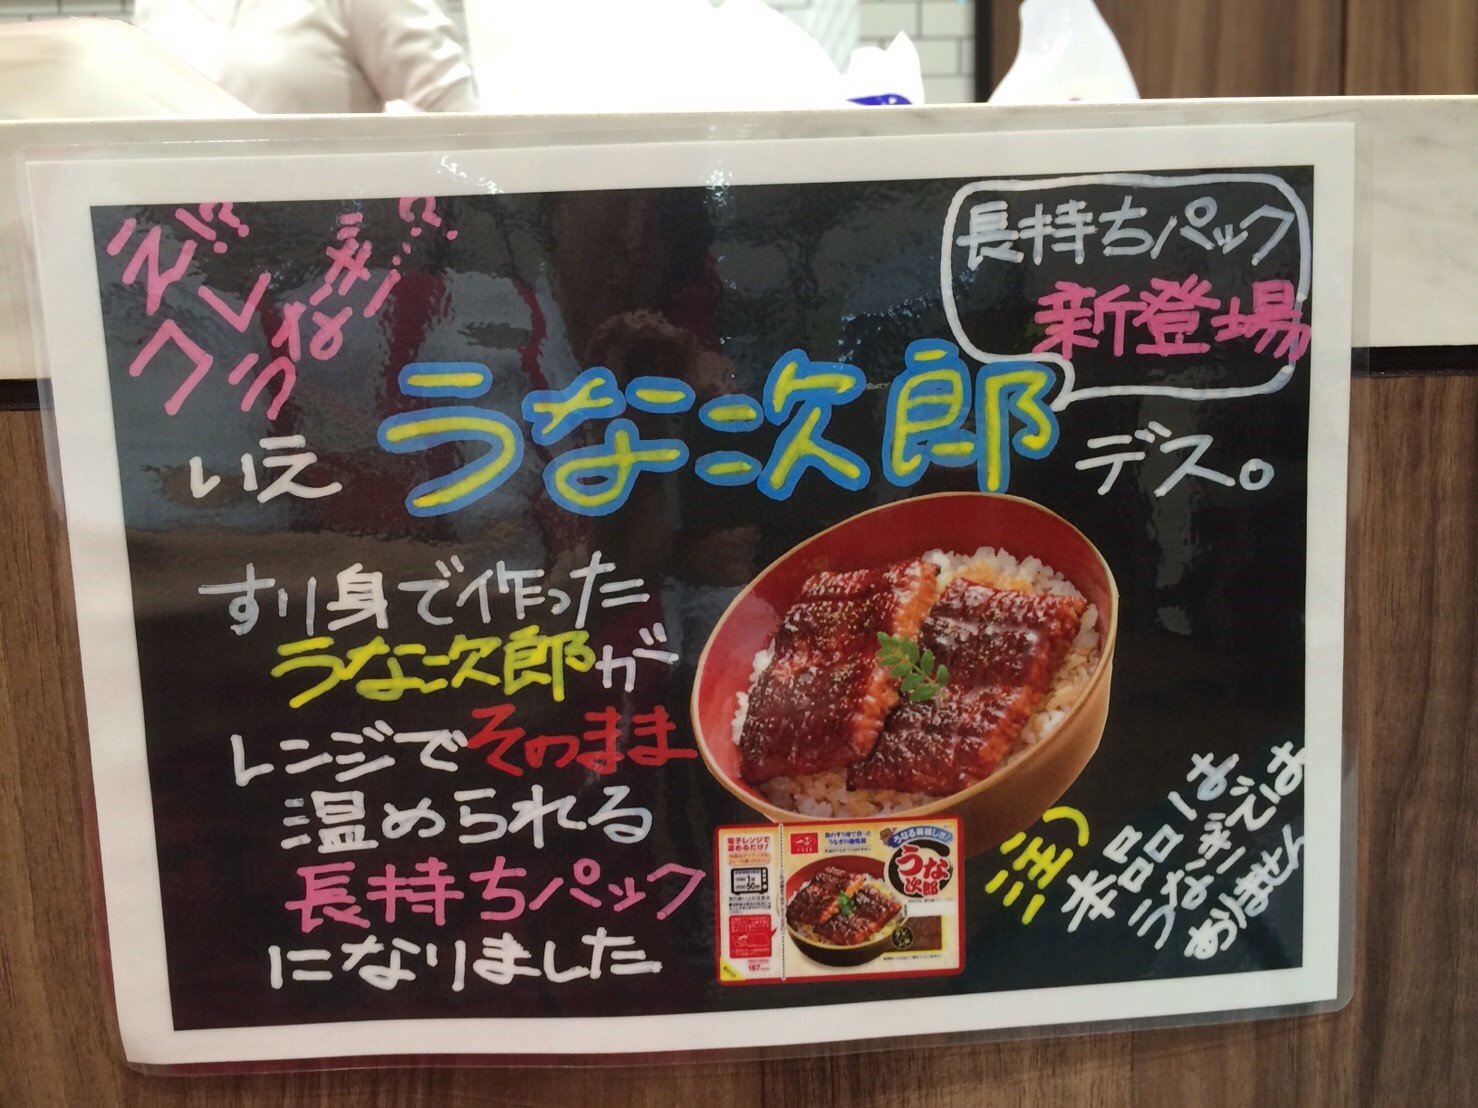 え!?
コレ
うなぎ…!?
長持ちパック
新登場
いえ
うな次郎
デス。
すり身で作った
うな次郎が
レンジでそのまま
温められる
長持ちパック
になりました
電子レンジで
温めるだけ!
魚のすり身で作った
うなる美味しさ!
うな
次郎
注)
本品は
うなぎでは
ありません